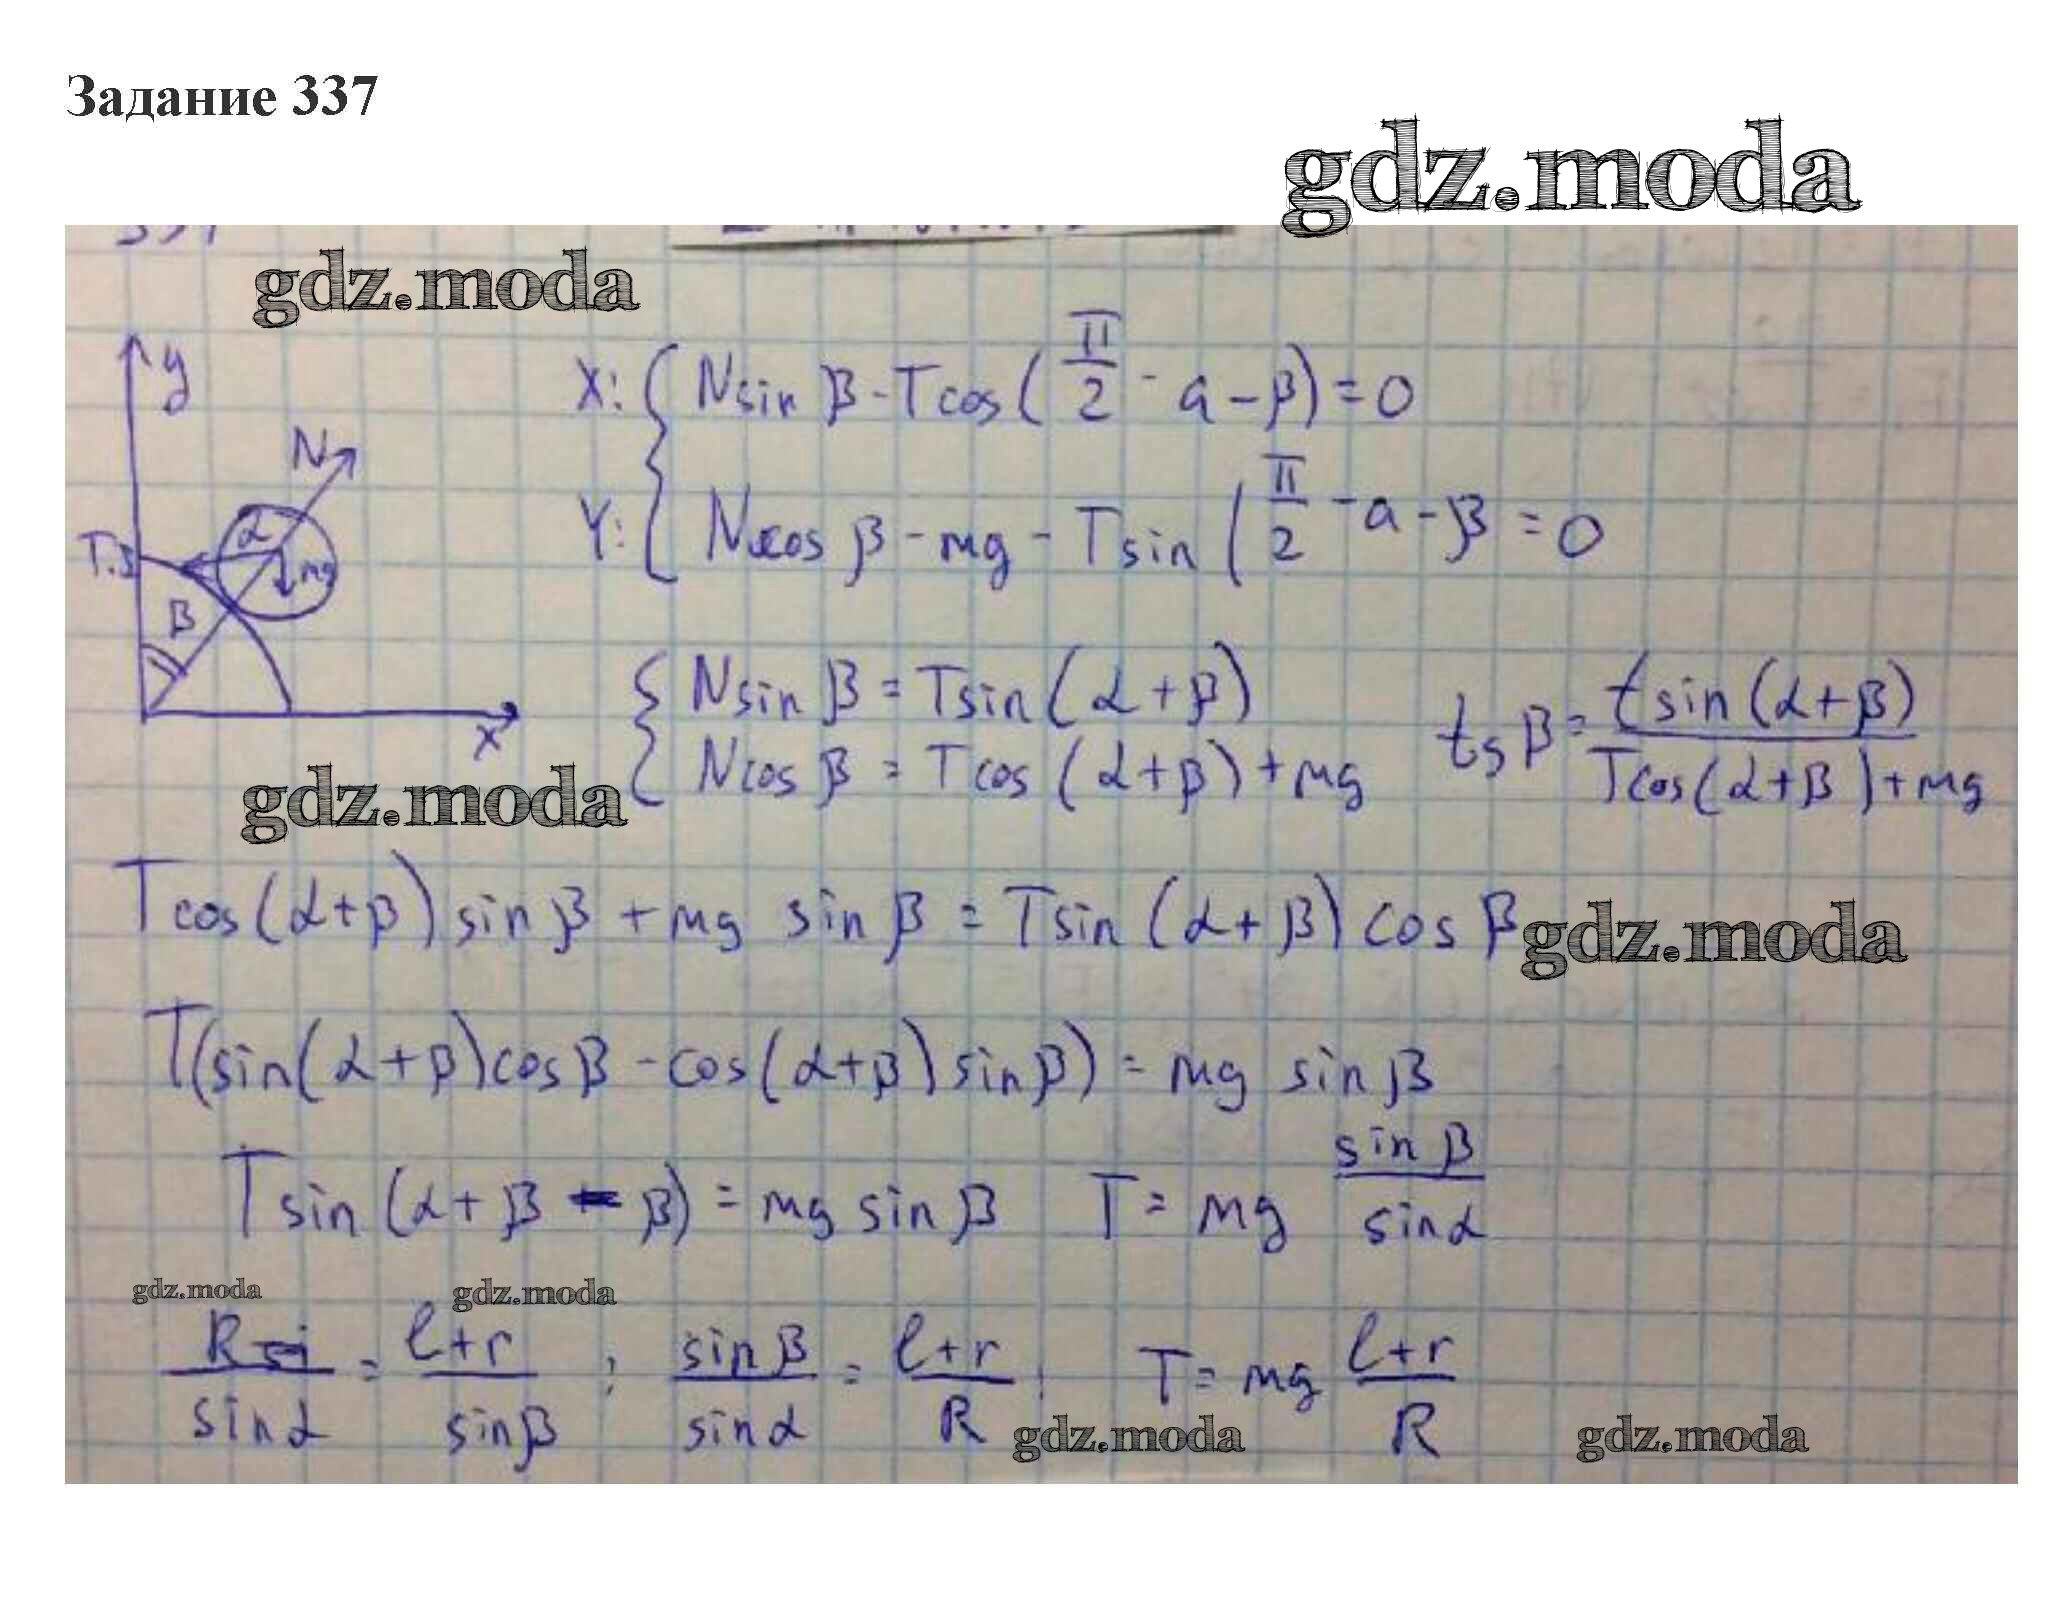 Задание 337
gdz.moda
337
gdz.moda
y
N
α
T.
mg
β
x
X: { N sin β - T cos ( π/2 - a - β) = 0
Y: { N cos β - mg - T sin ( π/2 - a - β = 0
{ N sin β = T sin (α + β)
{ N cos β = T cos (α + β) + mg
tg β = t sin (α + β) / T cos (α + β) + mg
gdz.moda
T cos (α + β) sin β + mg sin β = T sin (α + β) cos β
gdz.moda
T (sin (α + β) cos β - cos (α + β) sin β) = mg sin β
T sin (α + β - β) = mg sin β T = mg sin β / sin α
gdz.moda gdz.moda
R / sin α = l + r / sin β ; sin β / sin α = l + r / R ; T = mg l + r / R
gdz.moda gdz.moda